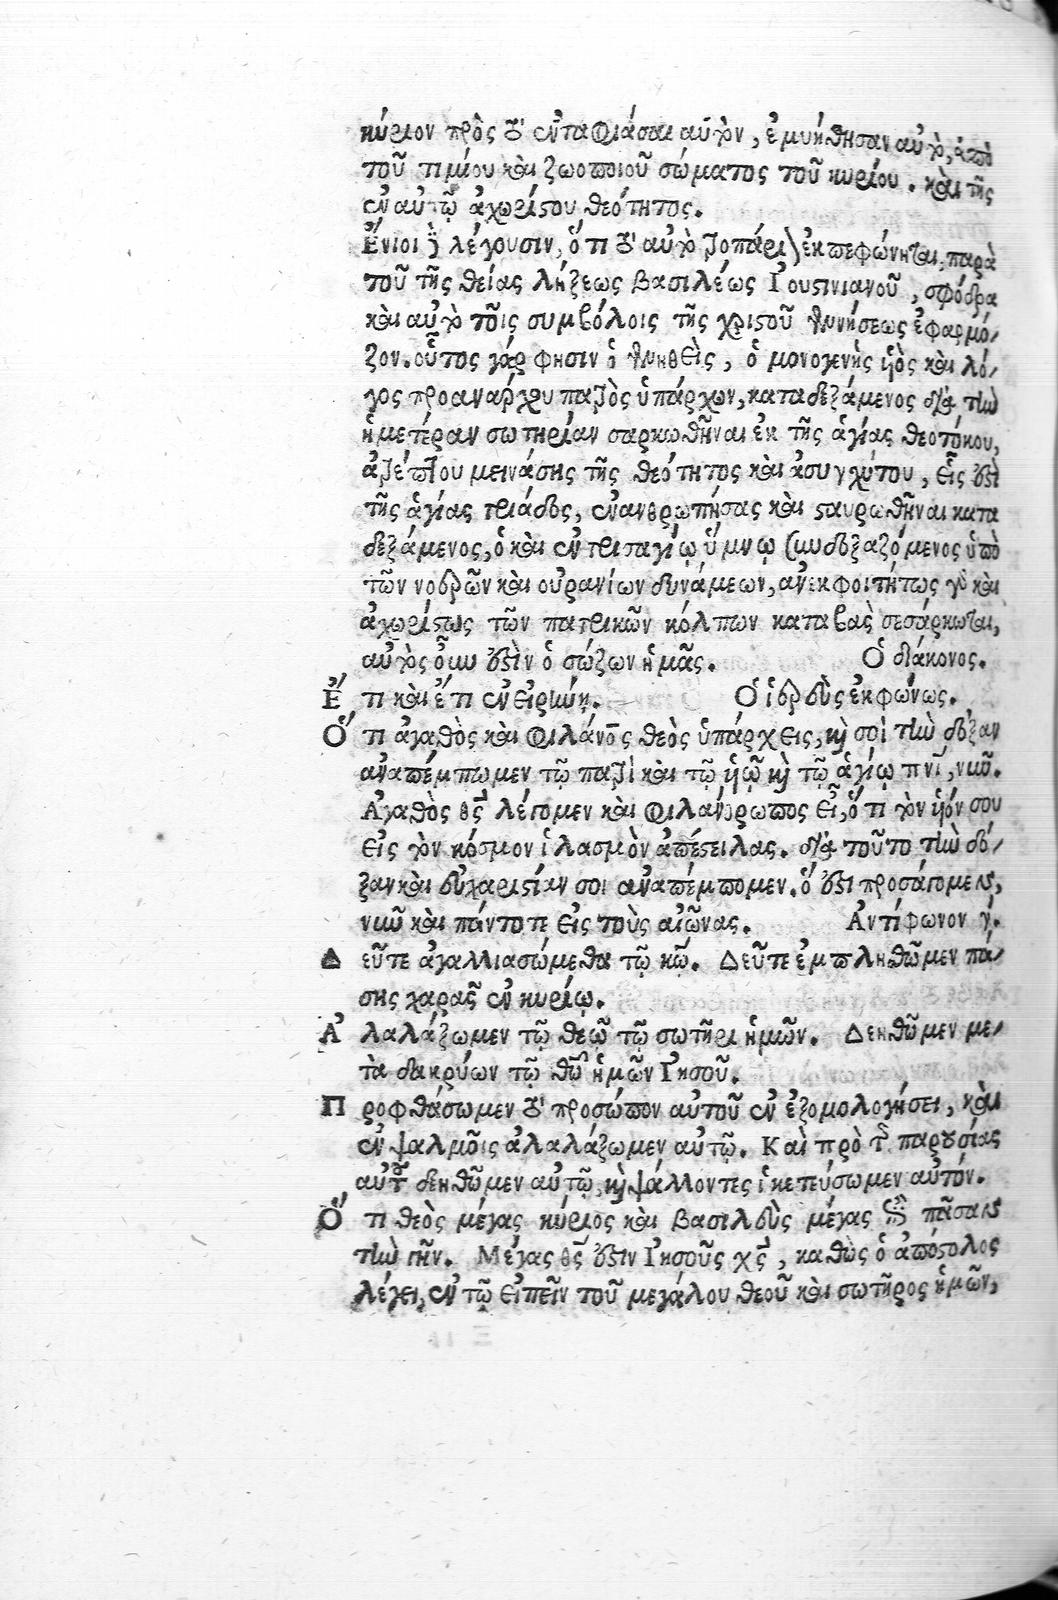 κύριον πρὸς τὸ ἐνταφιάσαι αὐτὸν, ἐμυήθησαν αὐτὸ, ἀπὸ
τοῦ τιμίου καὶ ζωοποιοῦ σώματος τοῦ κυρίου. καὶ τῆς
ἐν αὐτῷ ἀχωρίστου θεότητος.
Ἔνιοι δὲ λέγουσιν, ὅτι τὸ αὐτὸ τροπάριον ἐκπεφώνηται παρὰ
τοῦ τῆς θείας λήξεως βασιλέως Ἰουστινιανοῦ, σφόδρα
καὶ αὐτὸ τοῖς συμβόλοις τῆς χριστοῦ γεννήσεως ἐφαρμό-
ζον. οὗτος γάρ φησιν ὁ γεννηθεὶς, ὁ μονογενὴς υἱὸς καὶ λό-
γος προανάρχου πατρὸς ὑπάρχων, καταδεξάμενος διὰ τὴν
ἡμετέραν σωτηρίαν σαρκωθῆναι ἐκ τῆς ἁγίας θεοτόκου,
ἀτρέπτου μεινάσης τῆς θεότητος καὶ ἀσυγχύτου, εἷς ἐστὶ
τῆς ἁγίας τριάδος, ἐνανθρωπήσας καὶ σταυρωθῆναι κατα
δεξάμενος, ὁ καὶ ἐν τρισαγίῳ ὕμνῳ συνδοξαζόμενος ὑπὸ
τῶν νοερῶν καὶ οὐρανίων δυνάμεων, ἀνεκφοιτήτως γὰρ καὶ
ἀχωρίστως τῶν πατρικῶν κόλπων καταβὰς σεσάρκωται,
αὐτὸς οὖν ἐστὶν ὁ σώζων ἡμᾶς. Ὁ διάκονος.
Ἔτι καὶ ἔτι ἐν εἰρήνῃ. Ὁ ἱερεὺς ἐκφώνως.
Ὅτι ἀγαθὸς καὶ φιλάνος θεὸς ὑπάρχεις, καὶ σοὶ τὴν δόξαν
ἀναπέμπωμεν τῷ πατρὶ καὶ τῷ υἱῷ καὶ τῷ ἁγίῳ πνι, νῦν.
Ἀγαθὸς θς λέγομεν καὶ φιλάνθρωπος εἶ, ὅτι τὸν υἱόν σου
εἰς τὸν κόσμον ἱλασμὸν ἀπέστειλας. διὰ τοῦτο τὴν δό-
ξαν καὶ εὐχαριστίαν σοι ἀναπέμπομεν. ὅ ἐστι προσάγομεν,
νῦν καὶ πάντοτε εἰς τοὺς αἰῶνας. Ἀντίφωνον γ΄.
Δεῦτε ἀγαλλιασώμεθα τῷ κῳ. Δεῦτε ἐμπληθῶμεν πά-
σης χαρᾶς ἐν κυρίῳ.
Ἀλαλάξωμεν τῷ θεῷ τῷ σωτῆρι ἡμῶν. Δεηθῶμεν με-
τὰ δακρύων τῷ θῶ ἡμῶν Ἰησοῦ.
Προφθάσωμεν τὸ πρόσωπον αὐτοῦ ἐν ἐξομολογήσει, καὶ
ἐν ψαλμοῖς ἀλαλάξωμεν αὐτῷ. Καὶ πρὸ τῆς παρουσίας
αὐτοῦ δεηθῶμεν αὐτῷ, καὶ ψάλλοντες ἱκετεύσωμεν αὐτόν.
Ὅτι θεὸς μέγας κύριος καὶ βασιλεὺς μέγας ἐπὶ πᾶσαν
τὴν γῆν. Μέγας θς ἐστιν Ἰησοῦς χς, καθὼς ὁ ἀπόστολος
λέγει, ἐν τῷ εἰπεῖν τοῦ μεγάλου θεοῦ καὶ σωτῆρος ἡμῶν,